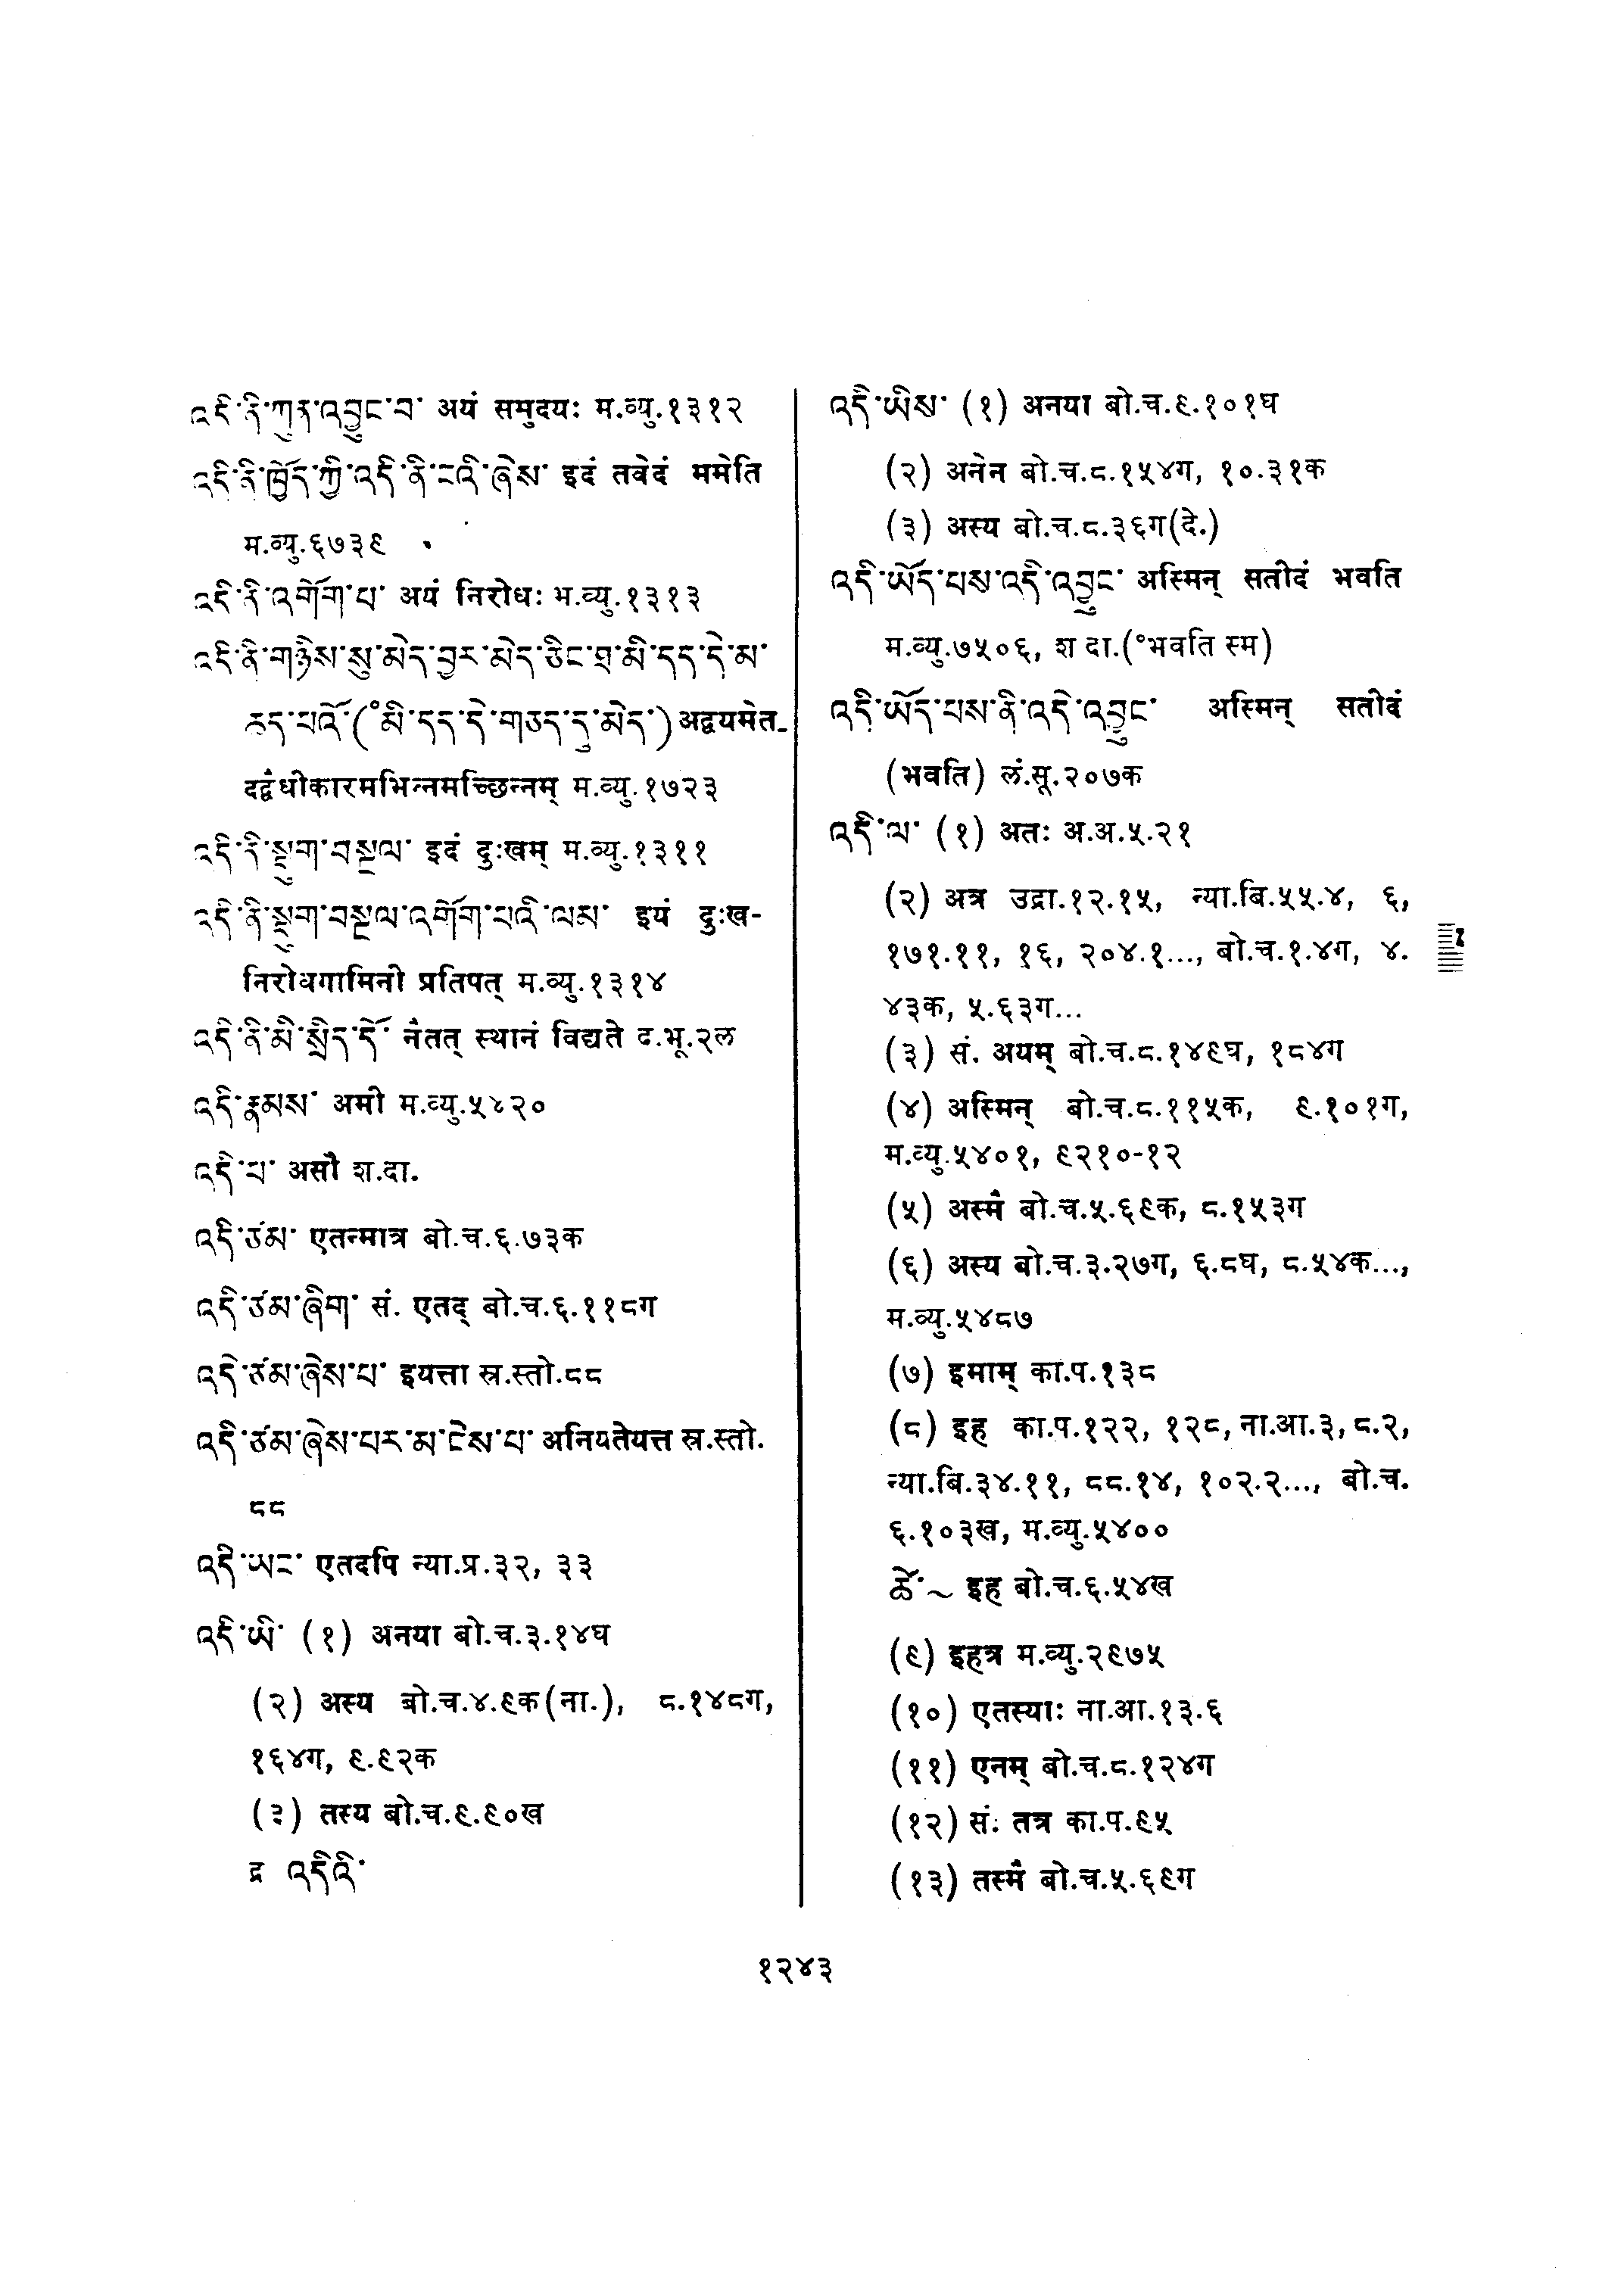 འདི་ནི་ཀུན་འབྱུང་བ་ अयं समुदयः म.व्यु.१३१२
འདི་ནི་ཁྱོད་ཀྱི་འདི་ནི་ངའི་ཞེས་ इदं तवेदं ममेति
म.व्यु.६७३९
འདི་ནི་འགོག་པ་ अयं निरोधः म.व्यु.१३१३
འདི་ནི་གཉིས་སུ་མེད་བྱར་མེད་ཅིང་ཐ་མི་དད་དེ་མ་
ཆད་པའོ་(°མི་དད་དེ་གཅད་དུ་མེད་) अद्वयमेत-
दद्वैधीकारमभिन्नमच्छिन्नम् म.व्यु.१७२३
འདི་ནི་སྡུག་བསྔལ་ इदं दुःखम् म.व्यु.१३११
འདི་ནི་སྡུག་བསྔལ་འགོག་པའི་ལས་ इयं दुःख-
निरोधगामिनी प्रतिपत् म.व्यु.१३१४
འདི་ནི་མི་སྲིད་དོ་ नैतत् स्थानं विद्यते द.भू.२ल
འདི་རྣམས་ अमी म.व्यु.५४२०
འདི་པ་ असौ श.दा.
འདི་ཙམ་ एतन्मात्र बो.च.६.७३क
འདི་ཙམ་ཞིག་ सं. एतद् बो.च.६.११८ग
འདི་ཙམ་ཞེས་པ་ इयत्ता स्र.स्तो.८८
འདི་ཙམ་ཞེས་པར་མ་ངེས་པ་ अनियतेयत्त स्र.स्तो.
८८
འདི་ཡང་ एतदपि न्या.प्र.३२, ३३
འདི་ཡི་ (१) अनया बो.च.३.१४घ
(२) अस्य बो.च.४.९क(ना.), ८.१४८ग,
१६४ग, ९.९२क
(३) तस्य बो.च.९.९०ख
द्र འདིའི་
འདི་ཡིས་ (१) अनया बो.च.९.१०१घ
(२) अनेन बो.च.८.१५४ग, १०.३१क
(३) अस्य बो.च.८.३६ग(दे.)
འདི་ཡོད་པས་འདི་འབྱུང་ अस्मिन् सतीदं भवति
म.व्यु.७५०६, श दा.(°भवति स्म)
འདི་ཡོད་པས་ནི་འདི་འབྱུང་ अस्मिन् सतीदं
(भवति) लं.सू.२०७क
འདི་ལ་ (१) अतः अ.अ.५.२१
(२) अत्र उद्रा.१२.१५, न्या.बि.५५.४, ६,
१७१.११, १६, २०४.१..., बो.च.१.४ग, ४.
४३क, ५.६३ग...
(३) सं. अयम् बो.च.८.१४९घ, १८४ग
(४) अस्मिन् बो.च.८.११५क, ९.१०१ग,
म.व्यु.५४०१, ९२१०-१२
(५) अस्मै बो.च.५.६९क, ८.१५३ग
(६) अस्य बो.च.३.२७ग, ६.८घ, ८.५४क...,
म.व्यु.५४८७
(७) इमाम् का.प.१३८
(८) इह का.प.१२२, १२८, ना.आ.३, ८.२,
न्या.बि.३४.११, ८८.१४, १०२.२..., बो.च.
६.१०३ख, म.व्यु.५४००
ཚེ་~ इह बो.च.६.५४ख
(९) इहत्र म.व्यु.२९७५
(१०) एतस्याः ना.आ.१३.६
(११) एनम् बो.च.८.१२४ग
(१२) सं. तत्र का.प.९५
(१३) तस्मै बो.च.५.६९ग
१२४३